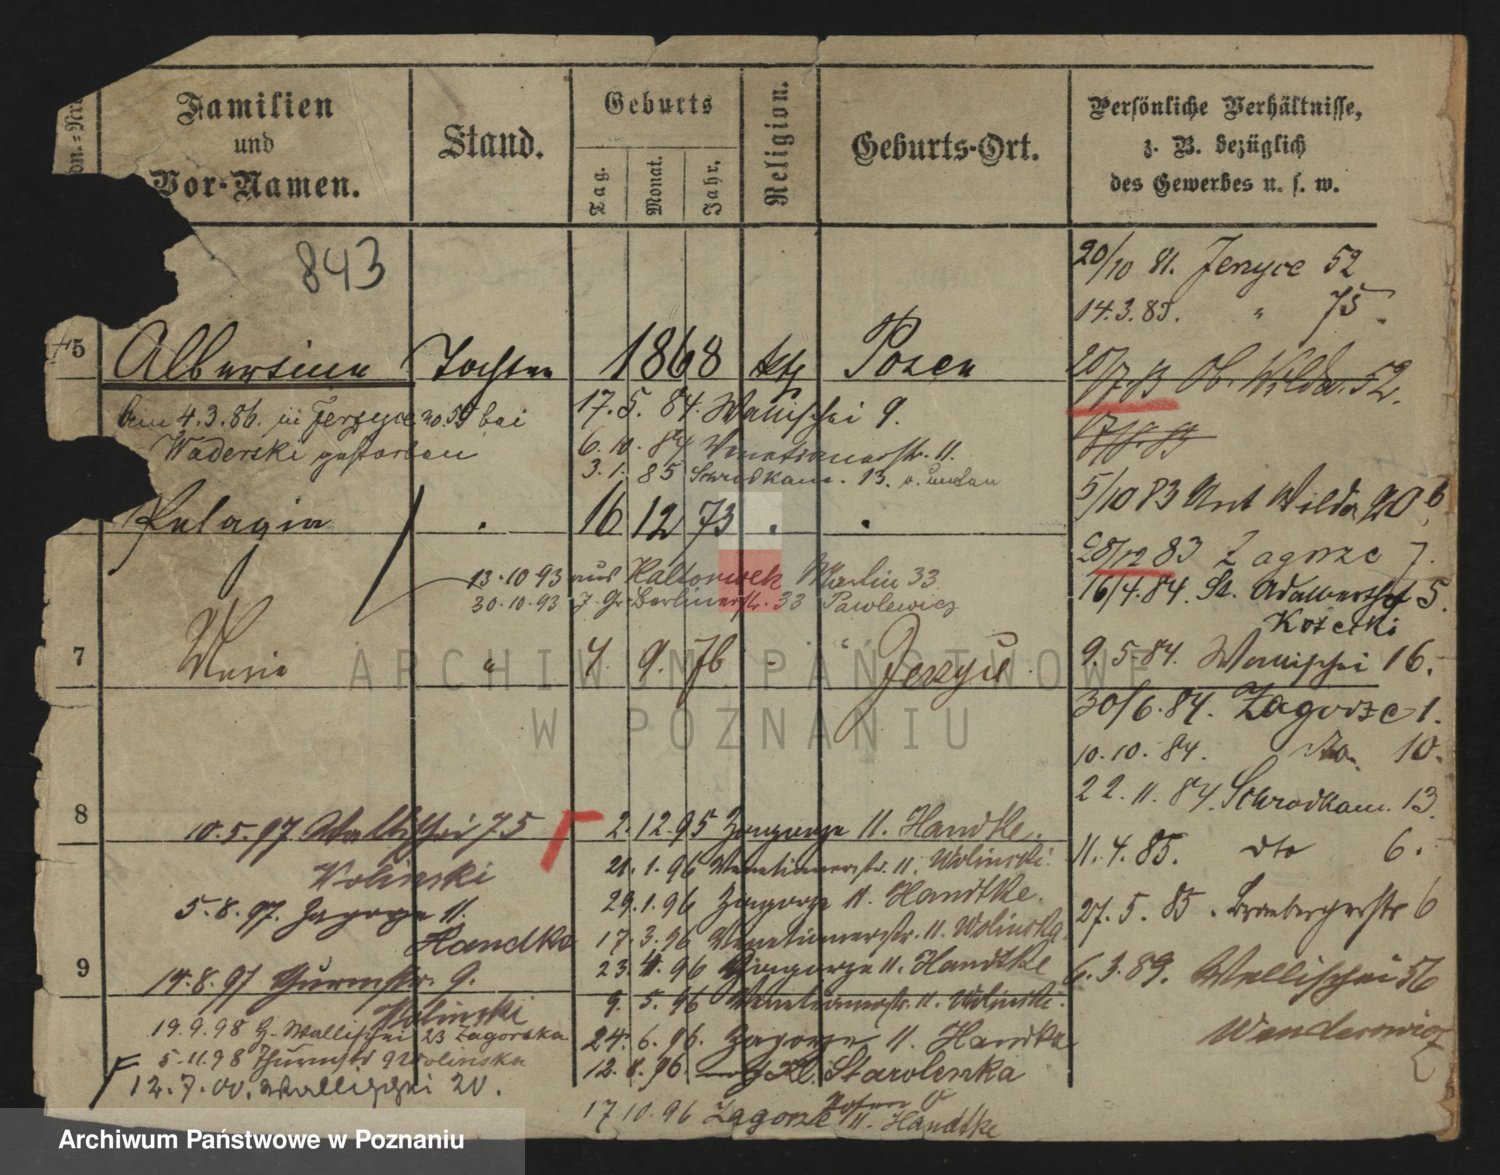 Familien
und
Vor-Namen.
Stand.
Geburts
Tag.
Monat.
Jahr.
Religion.
Geburts-Ort.
Persönliche Verhältnisse,
z. B. bezüglich
des Gewerbes u. s. w.
843
20/10 81. Jerzyce 52
14.3.83. " 75
5 Albertine Tochter 1868 kth Posen
20/7.83 Ob. Wilda. 52.
am 4.3.86. in Jerzyce no. 59 bei
Waderski gestorben
17.5.84. Wallischei 9.
6.10.84 Venetianerstr. 11.
3.1.85 Schrodkam. 13.
5/10 83 Unt Wilda 20 b
Pelagia " 16 12 73 " "
28/12 83 Zagorze 7.
13.10.93 aus Martin 33
30.10.93 Berlinerstr. 33 Pawlewicz
16/4.84. St. Adalbertstr 5.
Kosetki
7 Maria " 4. 9. 76 - " Jerzyce
9.5.84. Wallischei 16.
30/6.84. Zagorze 1.
10.10.84. dto 10.
22.11.84. Schrodkam. 13.
8
10.5.97 Wallischei 75
Wolinski
2.12.95 Zagorze 11. Handke.
21.1.96 Venetianerstr. 11. Wolinski.
11.4.85. dto 6.
5.8.97. Zagorze 11.
Handke
29.1.96 Zagorze 11. Handtke.
17.3.96 Venetianerstr. 11. Wolinska.
27.5.85. Brombergerstr 6
9
14.8.97 Thurmstr. 9.
Wolinski
23.4.96 Zagorze 11. Handtke
9.5.96 Venetianerstr. 11. Wolinski.
6.3.89. Wallischei 56
Wenderowicz
19.9.98 H. Wallischei 23 Zagorska
24.6.96. Zagorze 11. Handke
5.11.98 Thurmstr 9 Wolinska
12.8.96 Starolenka
12.7.00. Wallischei 20.
17.10.96 Zagorze 11. Handtke
ARCHIWUM PAŃSTWOWE
W POZNANIU
Archiwum Państwowe w Poznaniu